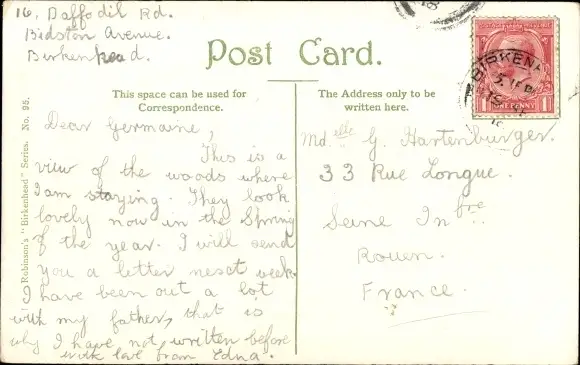 16, Daffodil Rd.
Bidston Avenue.
Birkenhead.
Post Card.
This space can be used for
Correspondence.
The Address only to be
written here.
Robinson's "Birkenhead" Series. No. 95.
Dear Germaine,
This is a
view of the woods where
I am staying. They look
lovely now in the Spring
of the year. I will send
you a letter next week.
I have been out a lot
with my father, that is
why I have not written before
with love from Edna.
Md.elle G. Hartenburger.
33 Rue Longue.
Seine Inbre
Rouen.
France.
BIRKENH
5. 15 P
ONE PENNY
1